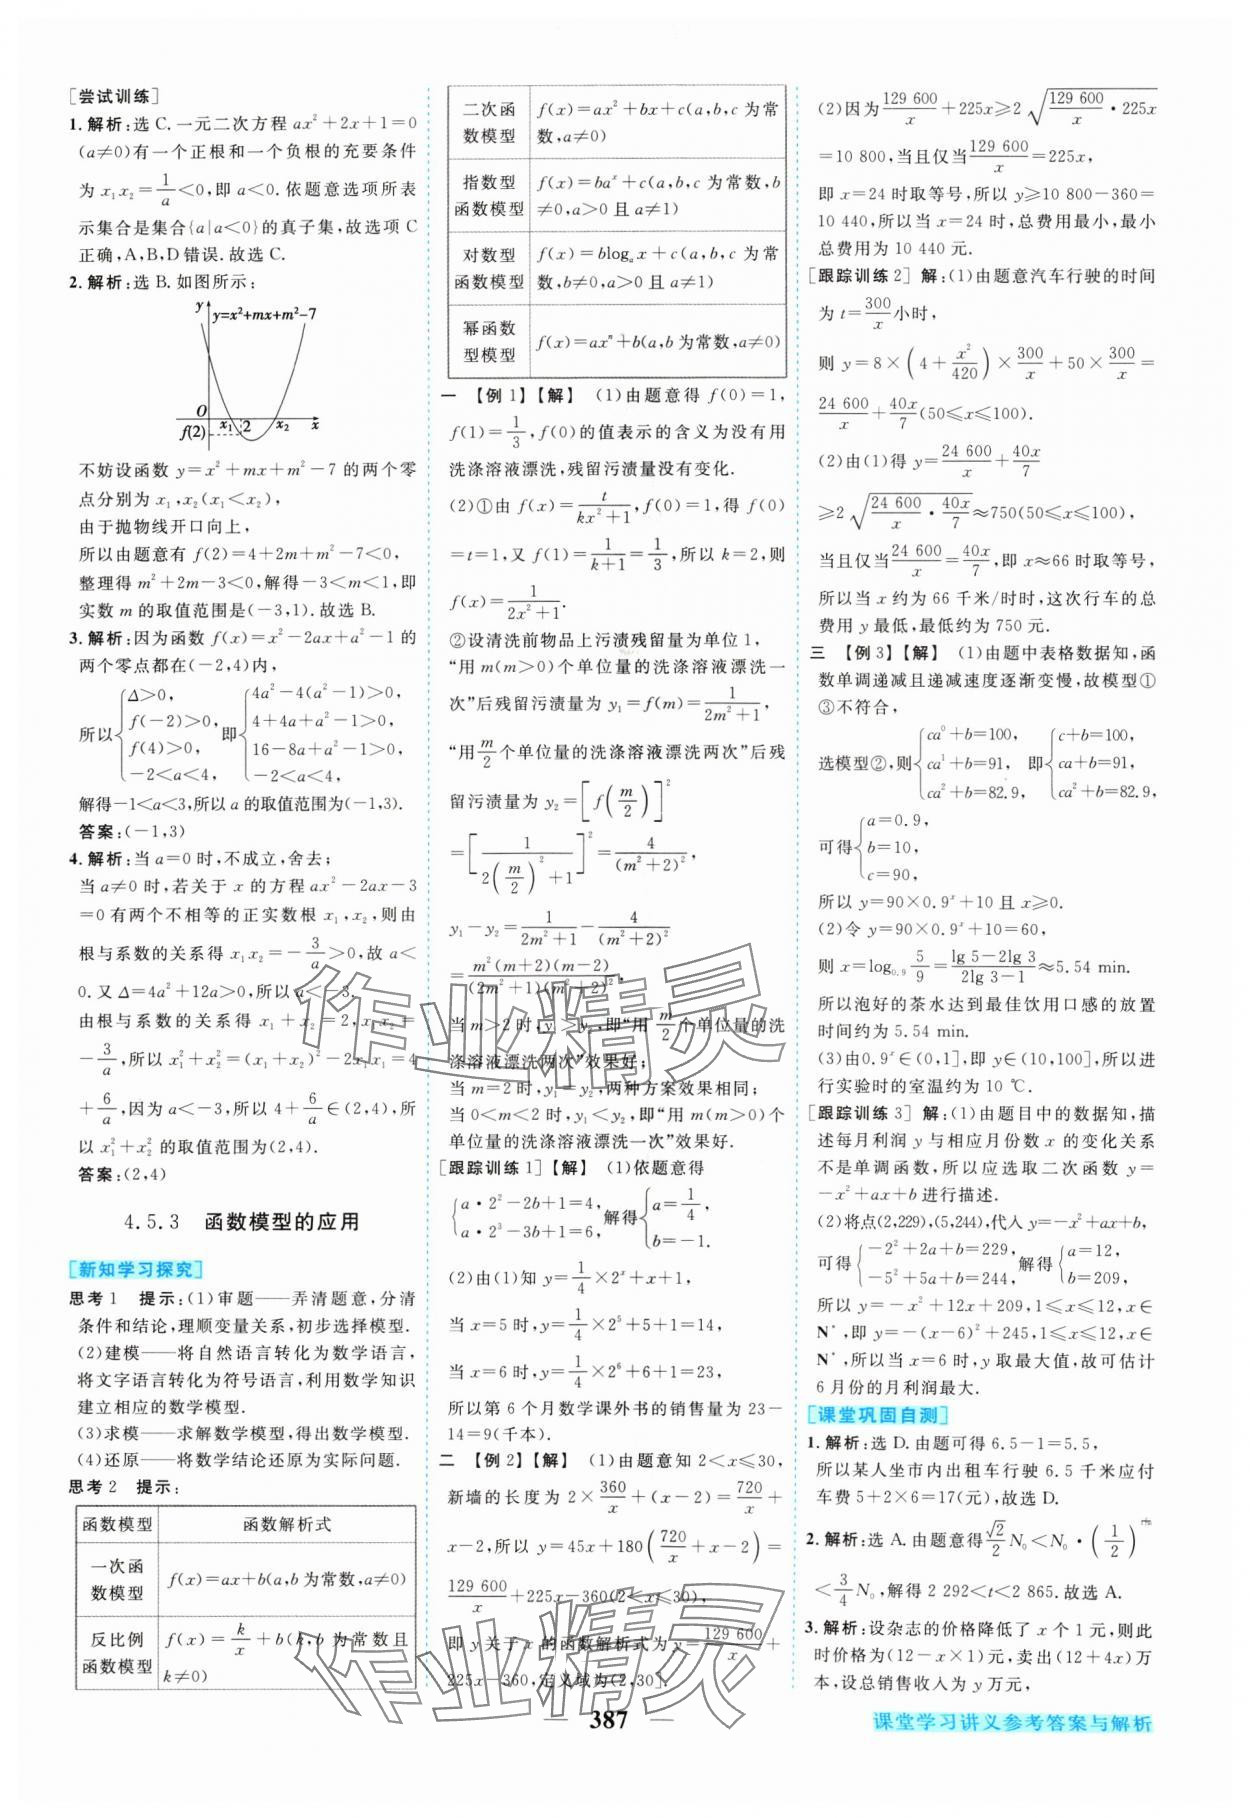 [尝试训练]
1. 解析:选 C. 一元二次方程 ax²+2x+1=0
(a≠0)有一个正根和一个负根的充要条件
为 x₁x₂=1/a<0,即 a<0. 依题意选项所表
示集合是集合{a|a<0}的真子集,故选项 C
正确,A,B,D 错误. 故选 C.
2. 解析:选 B. 如图所示:
y
y=x²+mx+m²-7
O
x₁
2
x₂
x
f(2)
不妨设函数 y=x²+mx+m²-7 的两个零
点分别为 x₁,x₂(x₁<x₂),
由于抛物线开口向上,
所以由题意有 f(2)=4+2m+m²-7<0,
整理得 m²+2m-3<0,解得-3<m<1,即
实数 m 的取值范围是(-3,1). 故选 B.
3. 解析:因为函数 f(x)=x²-2ax+a²-1 的
两个零点都在(-2,4)内,
所以{Δ>0, f(-2)>0, f(4)>0, -2<a<4, 即{4a²-4(a²-1)>0, 4+4a+a²-1>0, 16-8a+a²-1>0, -2<a<4,
解得-1<a<3,所以 a 的取值范围为(-1,3).
答案:(-1,3)
4. 解析:当 a=0 时,不成立,舍去;
当 a≠0 时,若关于 x 的方程 ax²-2ax-3
=0 有两个不相等的正实数根 x₁,x₂,则由
根与系数的关系得 x₁x₂=-3/a>0,故 a<
0. 又 Δ=4a²+12a>0,所以 a<-3.
由根与系数的关系得 x₁+x₂=2,x₁x₂=
-3/a,所以 x₁²+x₂²=(x₁+x₂)²-2x₁x₂=4
+6/a,因为 a<-3,所以 4+6/a∈(2,4),所
以 x₁²+x₂² 的取值范围为(2,4).
答案:(2,4)
4.5.3 函数模型的应用
[新知学习探究]
思考 1 提示:(1)审题——弄清题意,分清
条件和结论,理顺变量关系,初步选择模型.
(2)建模——将自然语言转化为数学语言,
将文字语言转化为符号语言,利用数学知识
建立相应的数学模型.
(3)求模——求解数学模型,得出数学模型.
(4)还原——将数学结论还原为实际问题.
思考 2 提示:
函数模型 函数解析式
一次函数模型 f(x)=ax+b(a,b 为常数,a≠0)
反比例函数模型 f(x)=k/x+b(k,b 为常数且 k≠0)
二次函数模型 f(x)=ax²+bx+c(a,b,c 为常数,a≠0)
指数型函数模型 f(x)=baˣ+c(a,b,c 为常数,b≠0,a>0 且 a≠1)
对数型函数模型 f(x)=blogₐx+c(a,b,c 为常数,b≠0,a>0 且 a≠1)
幂函数型模型 f(x)=axⁿ+b(a,b 为常数,a≠0)
一 【例 1】【解】 (1)由题意得 f(0)=1,
f(1)=1/3,f(0)的值表示的含义为没有用
洗涤溶液漂洗,残留污渍量没有变化.
(2)①由 f(x)=t/(kx²+1),f(0)=1,得 f(0)
=t=1,又 f(1)=1/(k+1)=1/3,所以 k=2,则
f(x)=1/(2x²+1).
②设清洗前物品上污渍残留量为单位 1,
“用 m(m>0)个单位量的洗涤溶液漂洗一
次”后残留污渍量为 y₁=f(m)=1/(2m²+1),
“用m/2个单位量的洗涤溶液漂洗两次”后残
留污渍量为 y₂=[f(m/2)]²
=[1/(2(m/2)²+1)]²=4/(m²+2)²,
y₁-y₂=1/(2m²+1)-4/(m²+2)²
=m²(m+2)(m-2)/((2m²+1)(m²+2)²),
当 m>2 时,y₁>y₂,即“用m/2个单位量的洗
涤溶液漂洗两次”效果好;
当 m=2 时,y₁=y₂,两种方案效果相同;
当 0<m<2 时,y₁<y₂,即“用 m(m>0)个
单位量的洗涤溶液漂洗一次”效果好.
[跟踪训练 1]【解】 (1)依题意得
{a·2²-2b+1=4, a·2³-3b+1=6, 解得{a=1/4, b=-1.
(2)由(1)知 y=1/4×2ˣ+x+1,
当 x=5 时,y=1/4×2⁵+5+1=14,
当 x=6 时,y=1/4×2⁶+6+1=23,
所以第 6 个月数学课外书的销售量为 23-
14=9(千本).
二 【例 2】【解】 (1)由题意知 2<x≤30,
新墙的长度为 2×360/x+(x-2)=720/x+
x-2,所以 y=45x+180(720/x+x-2)=
129 600/x+225x-360(2<x≤30),
即 y 关于 x 的函数解析式为 y=129 600/x+
225x-360,定义域为(2,30].
(2)因为129 600/x+225x≥2√(129 600/x·225x)
=10 800,当且仅当129 600/x=225x,
即 x=24 时取等号,所以 y≥10 800-360=
10 440,所以当 x=24 时,总费用最小,最小
总费用为 10 440 元.
[跟踪训练 2] 解:(1)由题意汽车行驶的时间
为 t=300/x小时,
则 y=8×(4+x²/420)×300/x+50×300/x=
24 600/x+40x/7(50≤x≤100).
(2)由(1)得 y=24 600/x+40x/7
≥2√(24 600/x·40x/7)≈750(50≤x≤100),
当且仅当24 600/x=40x/7,即 x≈66 时取等号,
所以当 x 约为 66 千米/时时,这次行车的总
费用 y 最低,最低约为 750 元.
三 【例 3】【解】 (1)由题中表格数据知,函
数单调递减且递减速度逐渐变慢,故模型①
③不符合,
选模型②,则{ca⁰+b=100, ca¹+b=91, ca²+b=82.9, 即{c+b=100, ca+b=91, ca²+b=82.9,
可得{a=0.9, b=10, c=90,
所以 y=90×0.9ˣ+10 且 x≥0.
(2)令 y=90×0.9ˣ+10=60,
则 x=log₀.₉ 5/9=(lg 5-2lg 3)/(2lg 3-1)≈5.54 min.
所以泡好的茶水达到最佳饮用口感的放置
时间约为 5.54 min.
(3)由0.9ˣ∈(0,1],即 y∈(10,100],所以进
行实验时的室温约为 10 ℃.
[跟踪训练 3] 解:(1)由题目中的数据知,描
述每月利润 y 与相应月份数 x 的变化关系
不是单调函数,所以应选取二次函数 y=
-x²+ax+b 进行描述.
(2)将点(2,229),(5,244),代入 y=-x²+ax+b,
可得{-2²+2a+b=229, -5²+5a+b=244, 解得{a=12, b=209,
所以 y=-x²+12x+209,1≤x≤12,x∈
N*,即 y=-(x-6)²+245,1≤x≤12,x∈
N*,所以当 x=6 时,y 取最大值,故可估计
6 月份的月利润最大.
[课堂巩固自测]
1. 解析:选 D. 由题可得 6.5-1=5.5,
所以某人坐市内出租车行驶 6.5 千米应付
车费 5+2×6=17(元),故选 D.
2. 解析:选 A. 由题意得√2/2 N₀<N₀·(1/2)
<3/4 N₀,解得 2 292<t<2 865. 故选 A.
3. 解析:设杂志的价格降低了 x 个 1 元,则此
时价格为(12-x×1)元,卖出(12+4x)万
本,设总销售收入为 y 万元,
387
课堂学习讲义参考答案与解析
作业精灵
作业精灵